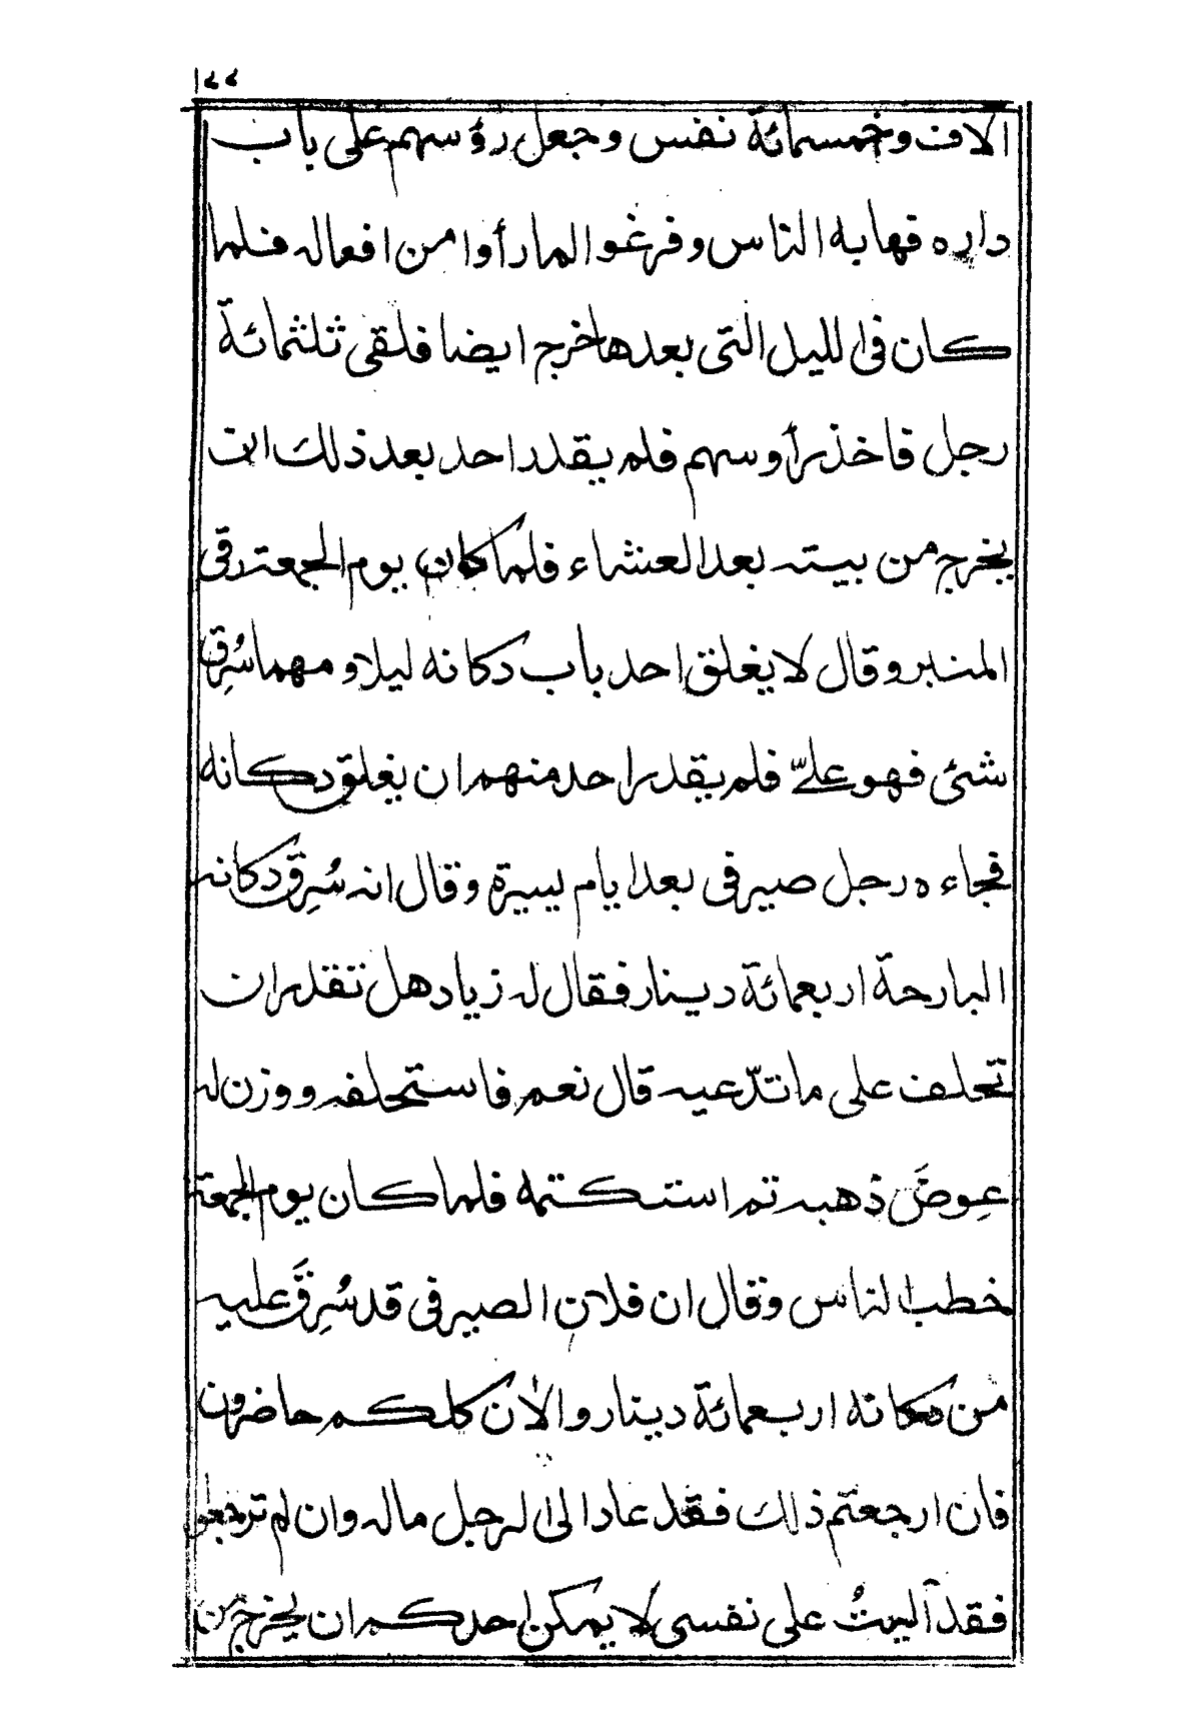 ١٤٤
الاف وخمسمائة نفس وجعل رؤسهم على باب
داره فهابه الناس وفزغوا لما رأوا من افعاله فلما
كان فى الليل التى بعدها خرج ايضا فلقى ثلثمائة
رجل فاخذ رأوسهم فلم يقدر احد بعد ذلك ان
يخرج من بيته بعد العشاء فلما كان يوم الجمعة رقى
المنبر وقال لا يغلق احد باب دكانه ليلا ومهما سُرِق
شئ فهو علىّ فلم يقدر احد منهم ان يغلق دكانه
فجاءه رجل صيرفى بعد ايام يسيرة وقال انه سُرِق دكانه
البارحة اربعمائة دينار فقال له زياد هل تقدر ان
تحلف على ما تدّعيه قال نعم فاستحلفه ووزن له
عِوضَ ذهبه تم استكتمه فلما كان يوم الجمعة
خطب الناس وقال ان فلان الصيرفى قد سُرِقَ عليه
من دكانه اربعمائة دينار والان كلكم حاضرون
فان ارجعتم ذلك فقد عاد الى الرجل ماله وان لم ترجعوا
فقد آليتُ على نفسى لا يمكن احدكم ان يخرج من